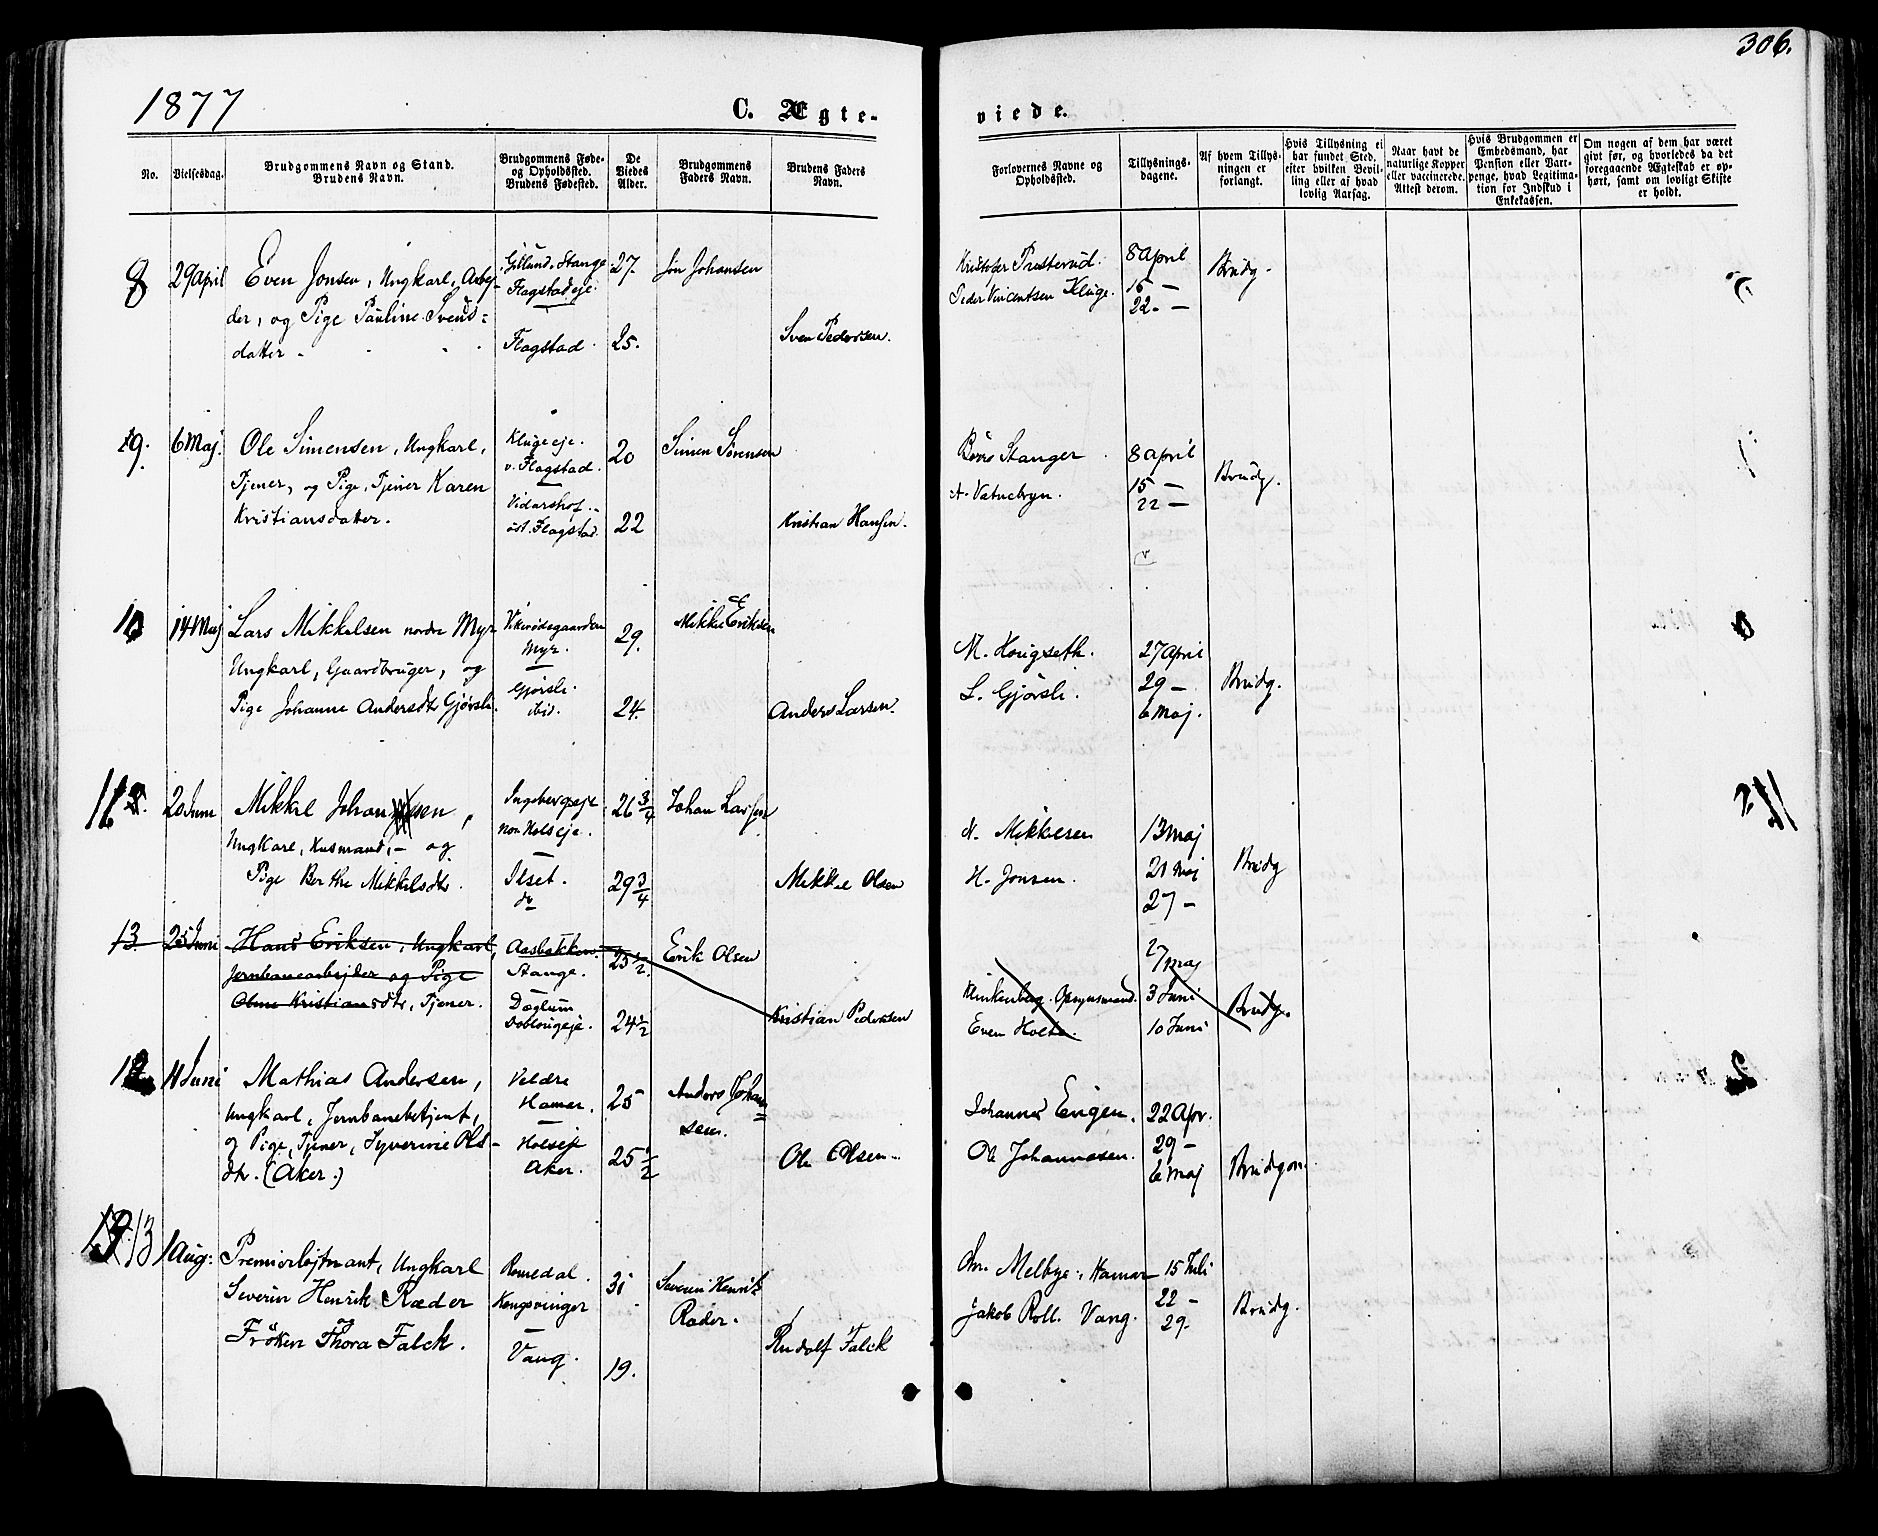 306.
1877
C. Ægte-
viede.
No.
Vielsesdag.
Brudgommens Navn og Stand.
Brudens Navn.
Brudgommens Føde-
og Opholdssted.
Brudens Fødested.
De
Viedes
Alder.
Brudgommens
Faders Navn.
Brudens Faders
Navn.
Forlovernes Navne og
Opholdssted.
Tillysnings-
dagene.
Af hvem Tillys-
ningen er
forlangt.
Hvis Tillysning ei
har fundet Sted,
efter hvilken Bevil-
ling eller af hvad
lovlig Aarsag.
Naar havt de
naturlige Kopper
eller vaccinerede.
Attest derom.
Hvis Brudgommen er
Embedsmand, har
Pension eller Vart-
penge, hvad Legitima-
tion for Indskud i
Enkekassen.
Om nogen af dem har været
givt før, og hvorledes da det
foregaaende Ægteskab er op-
hørt, samt om lovligt Skifte
er holdt.
8 29 April Even Jonsen, Ungkarl, Arbej-
der, og Pige Pauline Svends-
datter
Stange
Flagstadeje.
Flagstad.
27.
25.
Jon Johansen
Sven Pedersen.
Kristofer Presterud.
Peder Vincentsen Kluge.
8 April
15 —
22. —
Brudg.
9. 6 Maj. Ole Simensen, Ungkarl,
Tjener, og Pige, Tjener Karen
Kristiansdatter.
Klugeeje.
v. Flagstad.
Vidarshof.
øst. Flagstad.
20
22
Simen Sørensen
Kristian Hansen.
Børre Stanger
A. Vatnebryn.
8 April
15 —
22 —
Brudg.
10 14 Maj Lars Mikkelsen nordre Myr
Ungkarl, Gaardbruger, og
Pige Johanne Andersdtr Gjørsli.
Myr.
Gjørsli.
ibid.
29.
24.
Mikkel Eriksen
Anders Larsen.
M. Horigseth.
L. Gjørsli.
27 April
29 —
6 Maj.
Brudg.
11 20 Juni Mikkel Johansen,
Ungkarl, Husmand, — og
Pige Berthe Mikkelsdtr.
Ingebergseje
Ilset.
do
26 3/4
29 3/4
Johan Larsen
Mikkel Olsen
N. Mikkelsen
H. Jonsen.
13 Maj
21 Maj
27 —
Brudg
13 25 Juni Hans Eriksen, Ungkarl,
Jernbanearbejder og Pige
Oline Kristiansdtr, Tjener.
Aasbakken
Stange.
Døglum
Doblougeje.
25 1/2.
24 1/2
Erik Olsen
Kristian Pedersen
Klinkenberg. Opsynsmand.
Even Holte.
27 Maj
3 Juni
10 Juni
Brudg.
12 11 Juni Mathias Andersen,
Ungkarl, Jernbanebetjent,
og Pige, Tjener, Syverine Ols-
dtr. (Aker.)
Veldre
Hamar.
Holseje
Aker.
25
25 1/2
Anders Johan-
sen.
Ole Olsen
Johannes Engen.
Ole Johannesen.
22 Apr.
29 —
6 Maj
Brudgom.
13 1 Aug. Premierløjtnant, Ungkarl
Severin Henrik Ræder
Frøken Thora Falck.
Romedal.
Kongsvinger
Vang.
31
19.
Severin Henrik
Ræder.
Rudolf Falck
Chr. Melbye, Hamar
Jakob Roll. Vang.
15 Juli
22 —
29.
Brudg.